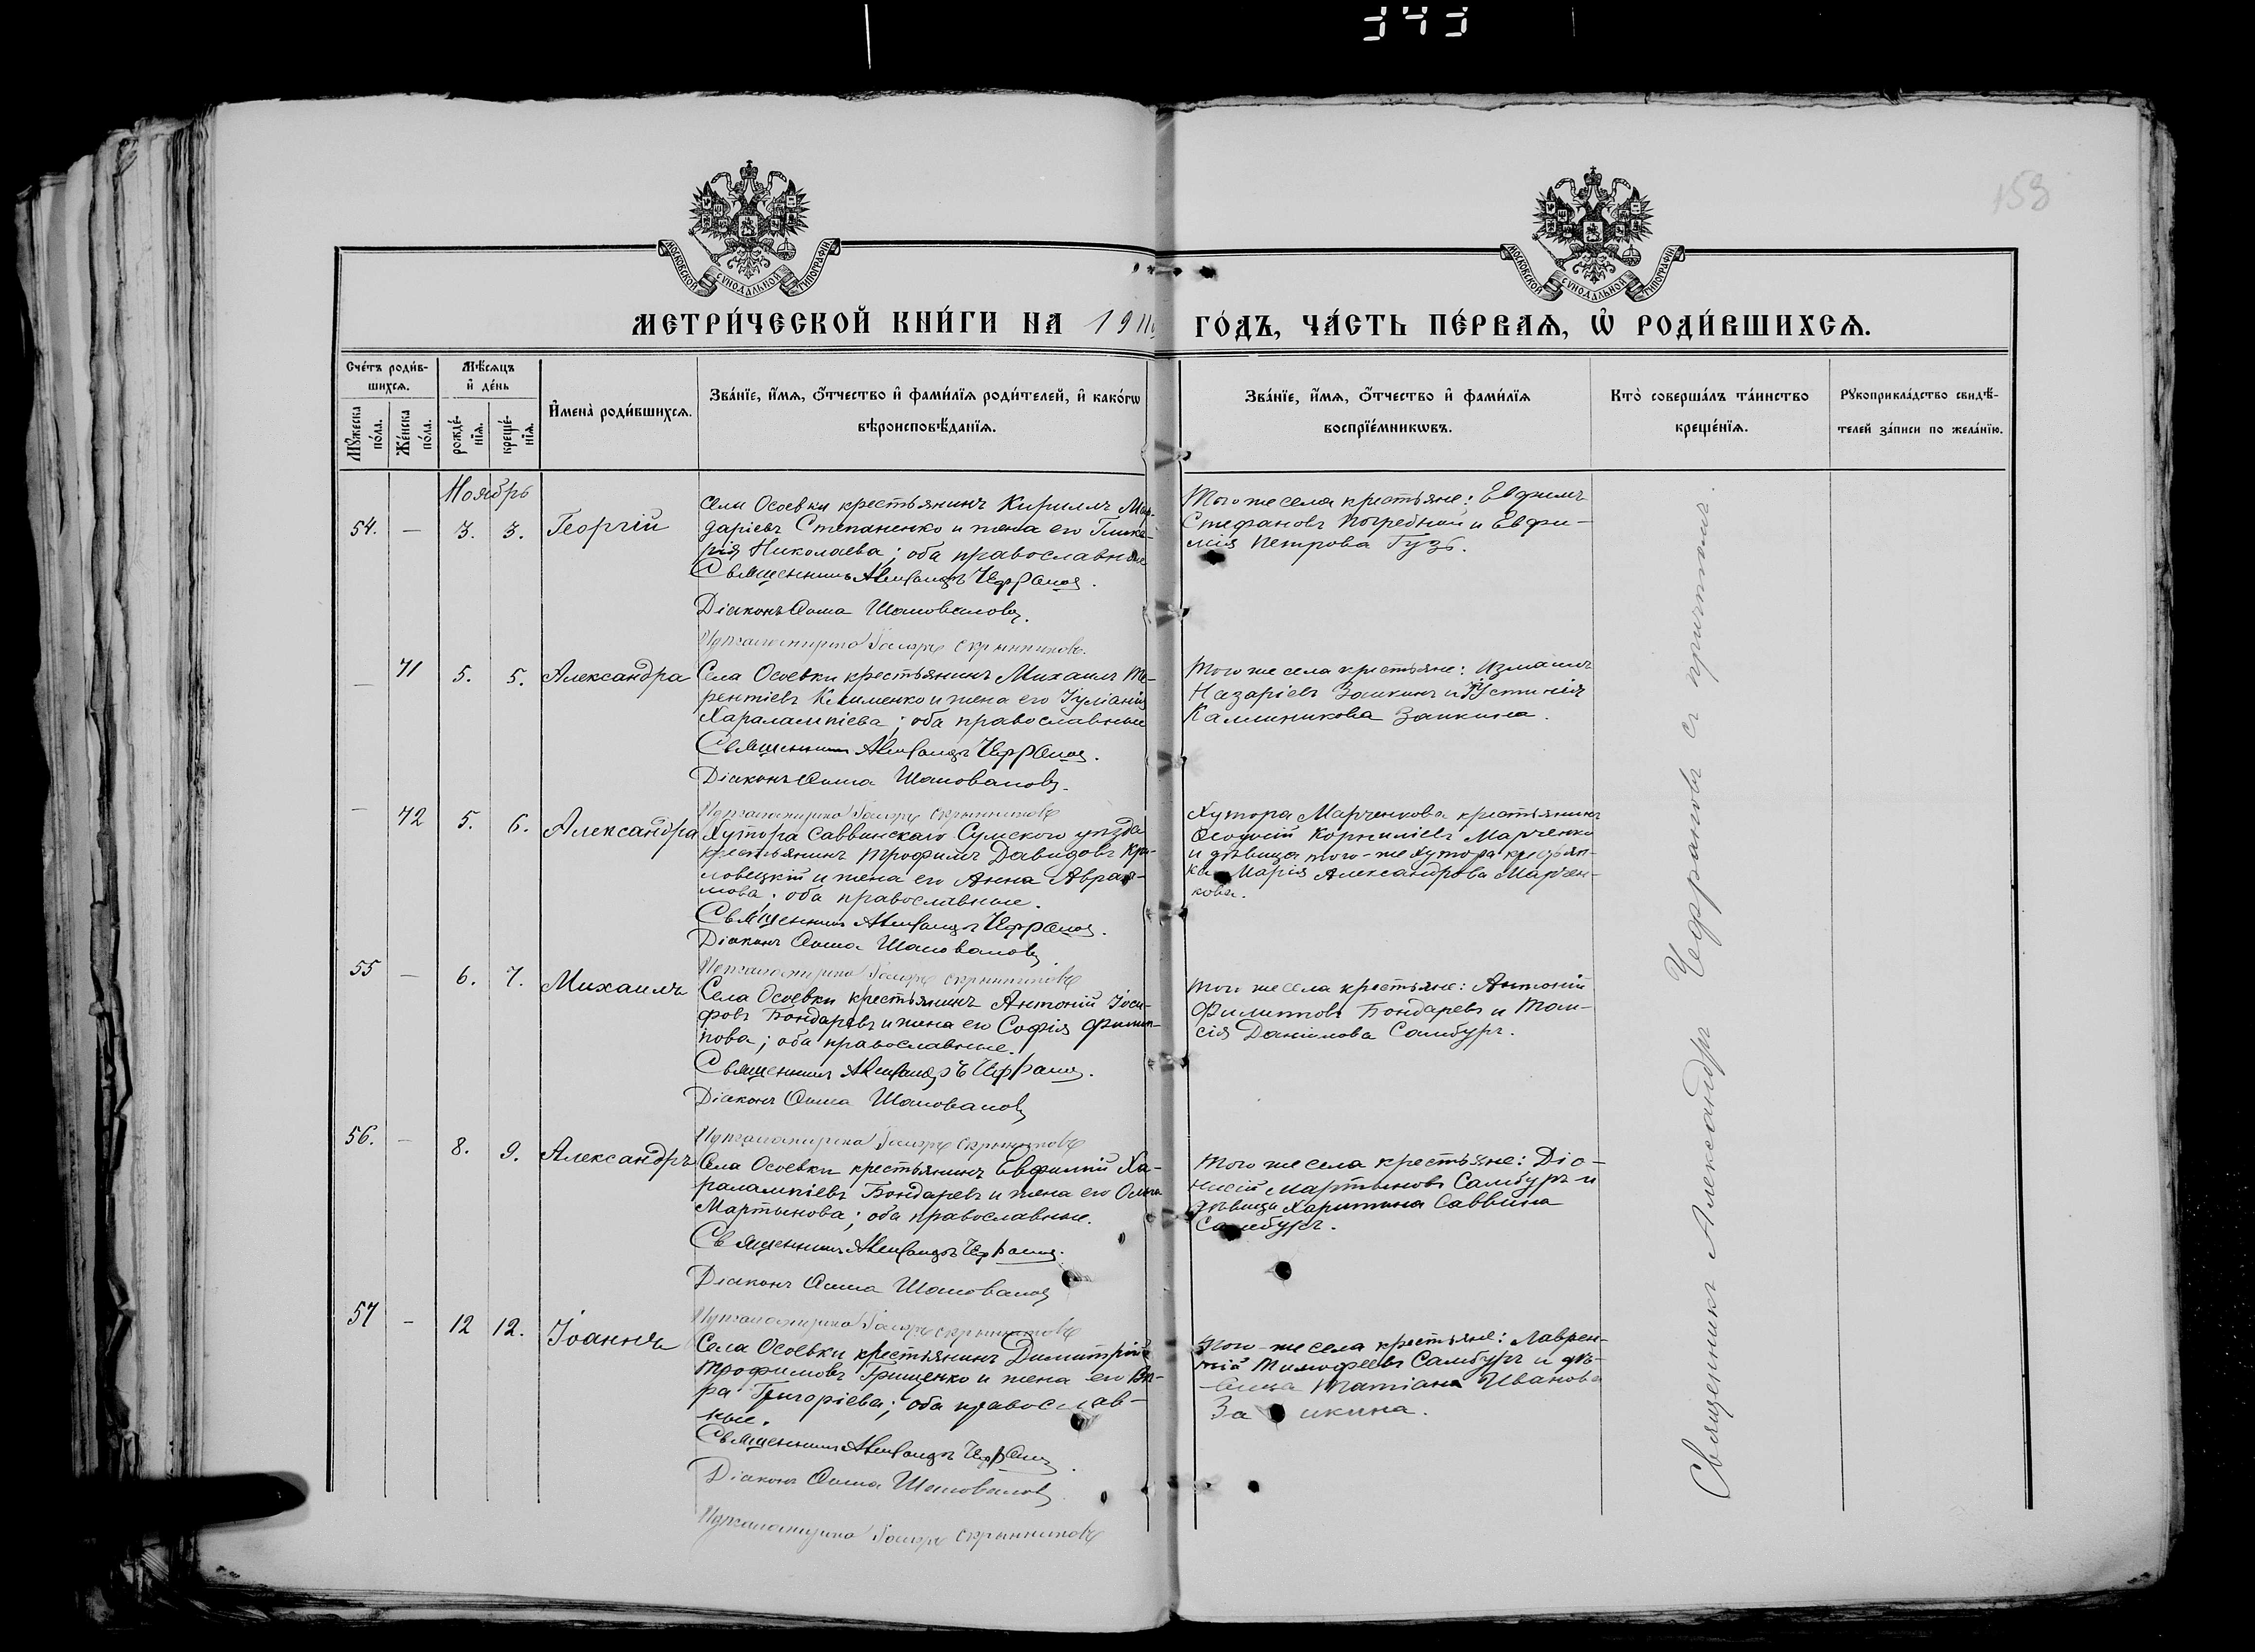 343
158
МОСКОВСКОЙ СѴНОДАЛЬНОЙ ТИПОГРАФІИ
МОСКОВСКОЙ СѴНОДАЛЬНОЙ ТИПОГРАФІИ
МЕТРИ́ЧЕСКОЙ КНИ́ГИ НА 19
ГО́ДЪ, ЧА́СТЬ ПЕ́РВАѦ, Ѽ РОДИ́ВШИХСѦ.
Сче́тъ роди́в-
шихсѧ.
Мꙋ́жеска
по́ла.
Же́нска
по́ла.
Мѣ́сѧцъ
и҆ де́нь
рожде́-
нїѧ.
креще́-
нїѧ.
И҆мена̀ роди́вшихсѧ.
Зва́нїе, и҆́мѧ, ѻ҆́тчество и҆ фами́лїѧ роди́телей, и҆ како́гѡ
вѣроисповѣ́данїѧ.
Зва́нїе, и҆́мѧ, ѻ҆́тчество и҆ фами́лїѧ
воспрїе́мникѡвъ.
Кто̀ соверша́лъ та́инство
креще́нїѧ.
Рꙋкоприкла́дство свидѣ́-
телей за́писи по жела́нїю.
Ноябрь
54. — 3. 3. Георгій
Села Осоевки крестьянинъ Кирилъ
даріевъ Степаненко и жена его Глике-
рія Николаева; оба православные
Священникъ Александръ Чефрановъ.
Діаконъ Ѳома Шаповаловъ.
Скрынниковъ
Того же села крестьяне: Евфимъ
Стефановъ Погребной и Евфи-
мія Петрова Гузь.
— 71 5. 5. Александра
Села Осоевки крестьянинъ Михаилъ Те-
рентіевъ Клименко и жена его Іуліанія
Харалампіева; оба православные
Священникъ Александръ Чефрановъ.
Діаконъ Ѳома Шаповаловъ.
Скрынниковъ
Того же села крестьяне: Измаилъ
Назаріевъ Заикинъ и Іустинія
Каллиникова Заикина.
— 72 5. 6. Александра
Хутора Саввинскаго Сумского уѣзда
крестьянинъ Трофимъ Давидовъ Кри-
ловецкій и жена его Анна Авраа-
мова; оба православные.
Священникъ Александръ Чефрановъ.
Діаконъ Ѳома Шаповаловъ
Скрынниковъ
Хутора Марченкова крестьянинъ
Ѳеодосій Корниліевъ Марченко
и дѣвица того-же хутора крестьян-
ка Марія Александрова Марчен-
кова.
55 — 6. 7. Михаилъ
Села Осоевки крестьянинъ Антоній Іоси-
фовъ Бондаревъ и жена его Софія Филип-
пова; оба православные.
Священникъ Александръ Чефрановъ.
Діаконъ Ѳома Шаповаловъ
Скрынниковъ
Того же села крестьяне: Антоній
Филипповъ Бондаревъ и Таи-
сія Даніилова Самбуръ.
56. — 8. 9. Александръ
Села Осоевки крестьянинъ Евфимій Ха-
ралампіевъ Бондаревъ и жена его Ольга
Мартынова; оба православные.
Священникъ Александръ Чефрановъ.
Діаконъ Ѳома Шаповаловъ
Скрынниковъ
Того же села крестьяне: Діо-
нисій Мартыновъ Самбуръ и
дѣвица Харитина Саввина
Самбуръ.
57 — 12 12. Іоаннъ
Села Осоевки крестьянинъ Димитрій
Трофимовъ Грищенко и жена его Вѣ-
ра Григоріева; оба православ-
ные.
Священникъ Александръ Чефрановъ.
Діаконъ Ѳома Шаповаловъ
Скрынниковъ
Того-же села крестьяне: Лаврен-
тій Тимофеевъ Самбуръ и дѣ-
вица Татіана Иванова
Заикина.
Священникъ Александръ Чефрановъ съ причтомъ.